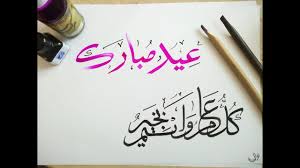 عيد مبارك
كل عام وانتم بخير